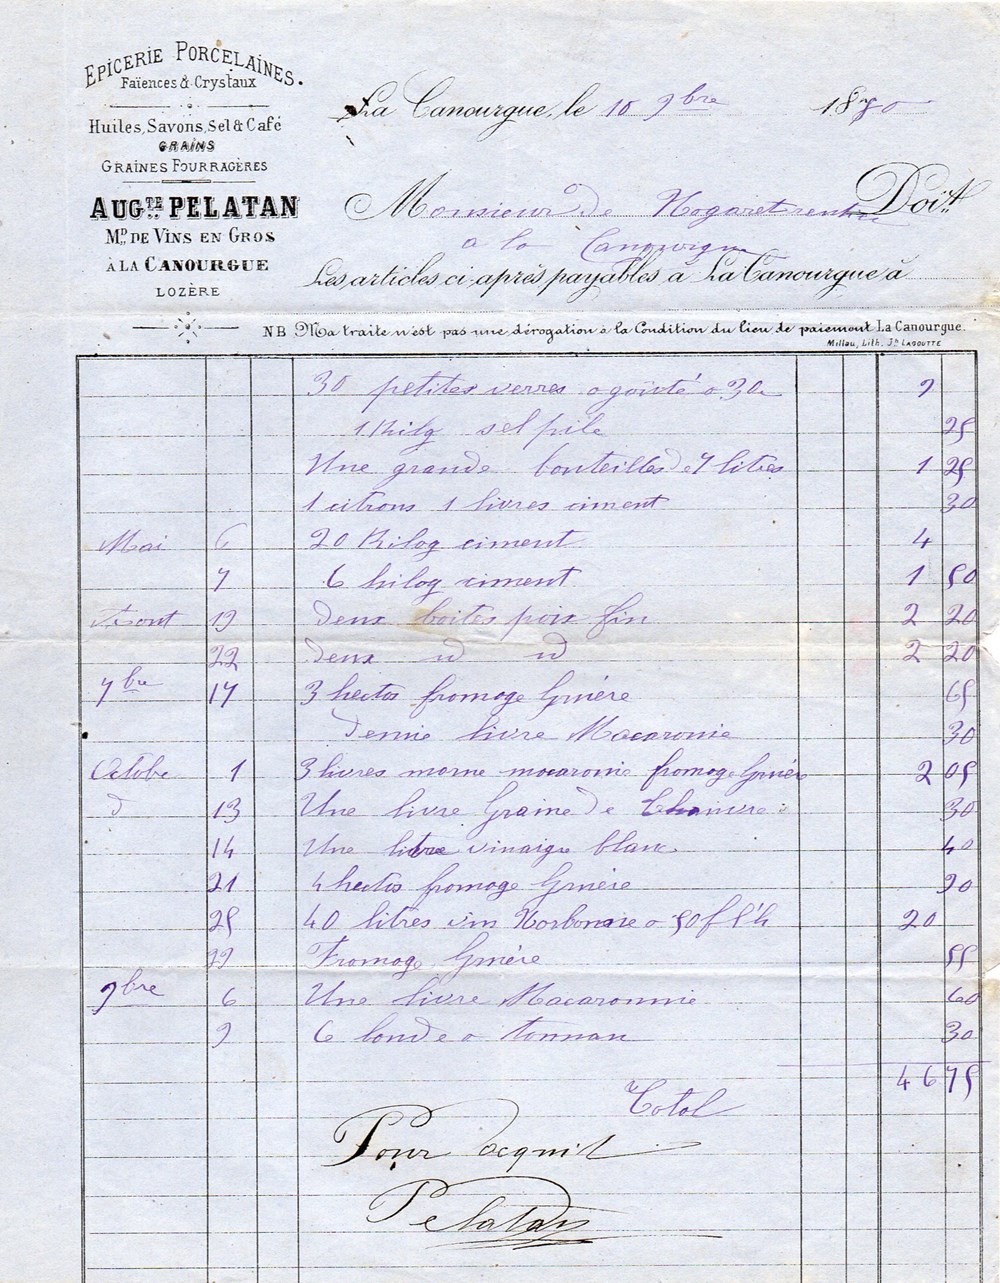 EPICERIE PORCELAINES.
Faïences & Crystaux
Huiles, Savons, Sel & Café
GRAINS
GRAINES FOURRAGÈRES
AUG.TE PELATAN
MD DE VINS EN GROS
À LA CANOURGUE
LOZÈRE
La Canourgue, le 10 9bre 18
Monsieur de Nogaret Doit
a la Canourgue
Les articles ci-après payables à La Canourgue à
NB Ma traite n'est pas une dérogation à la Condition du lieu de paiement La Canourgue.
Millau, Lith. Jh LAGOUTTE
30 petites verres a goûté a 30c 9
1 Kilg sel pile 25
Une grande bouteilles de 7 litres 1 25
1 citrons 1 livres ciment 30
Mai 6 20 Kilog ciment 4
7 6 kilog ciment 1 50
Aout 19 deux boites pois fin 2 20
22 deux id id 2 20
7bre 17 3 hectos fromage Gruière 65
demie livre Macaronie 30
Octobe 1 3 livres morue macaronie fromage Gruière 2 05
d 13 Une livre Graine de Chanvre 30
14 Une litre vinaigre blanc 40
21 4 hectos fromage Gruière 90
25 40 litres vin Norbonne a 50f l'h 20
29 Fromage Gruière 55
9bre 6 Une livre Macaronnie 60
9 6 bonde a tonnau 30
46 75
Total
Pour acquit
Pelatan